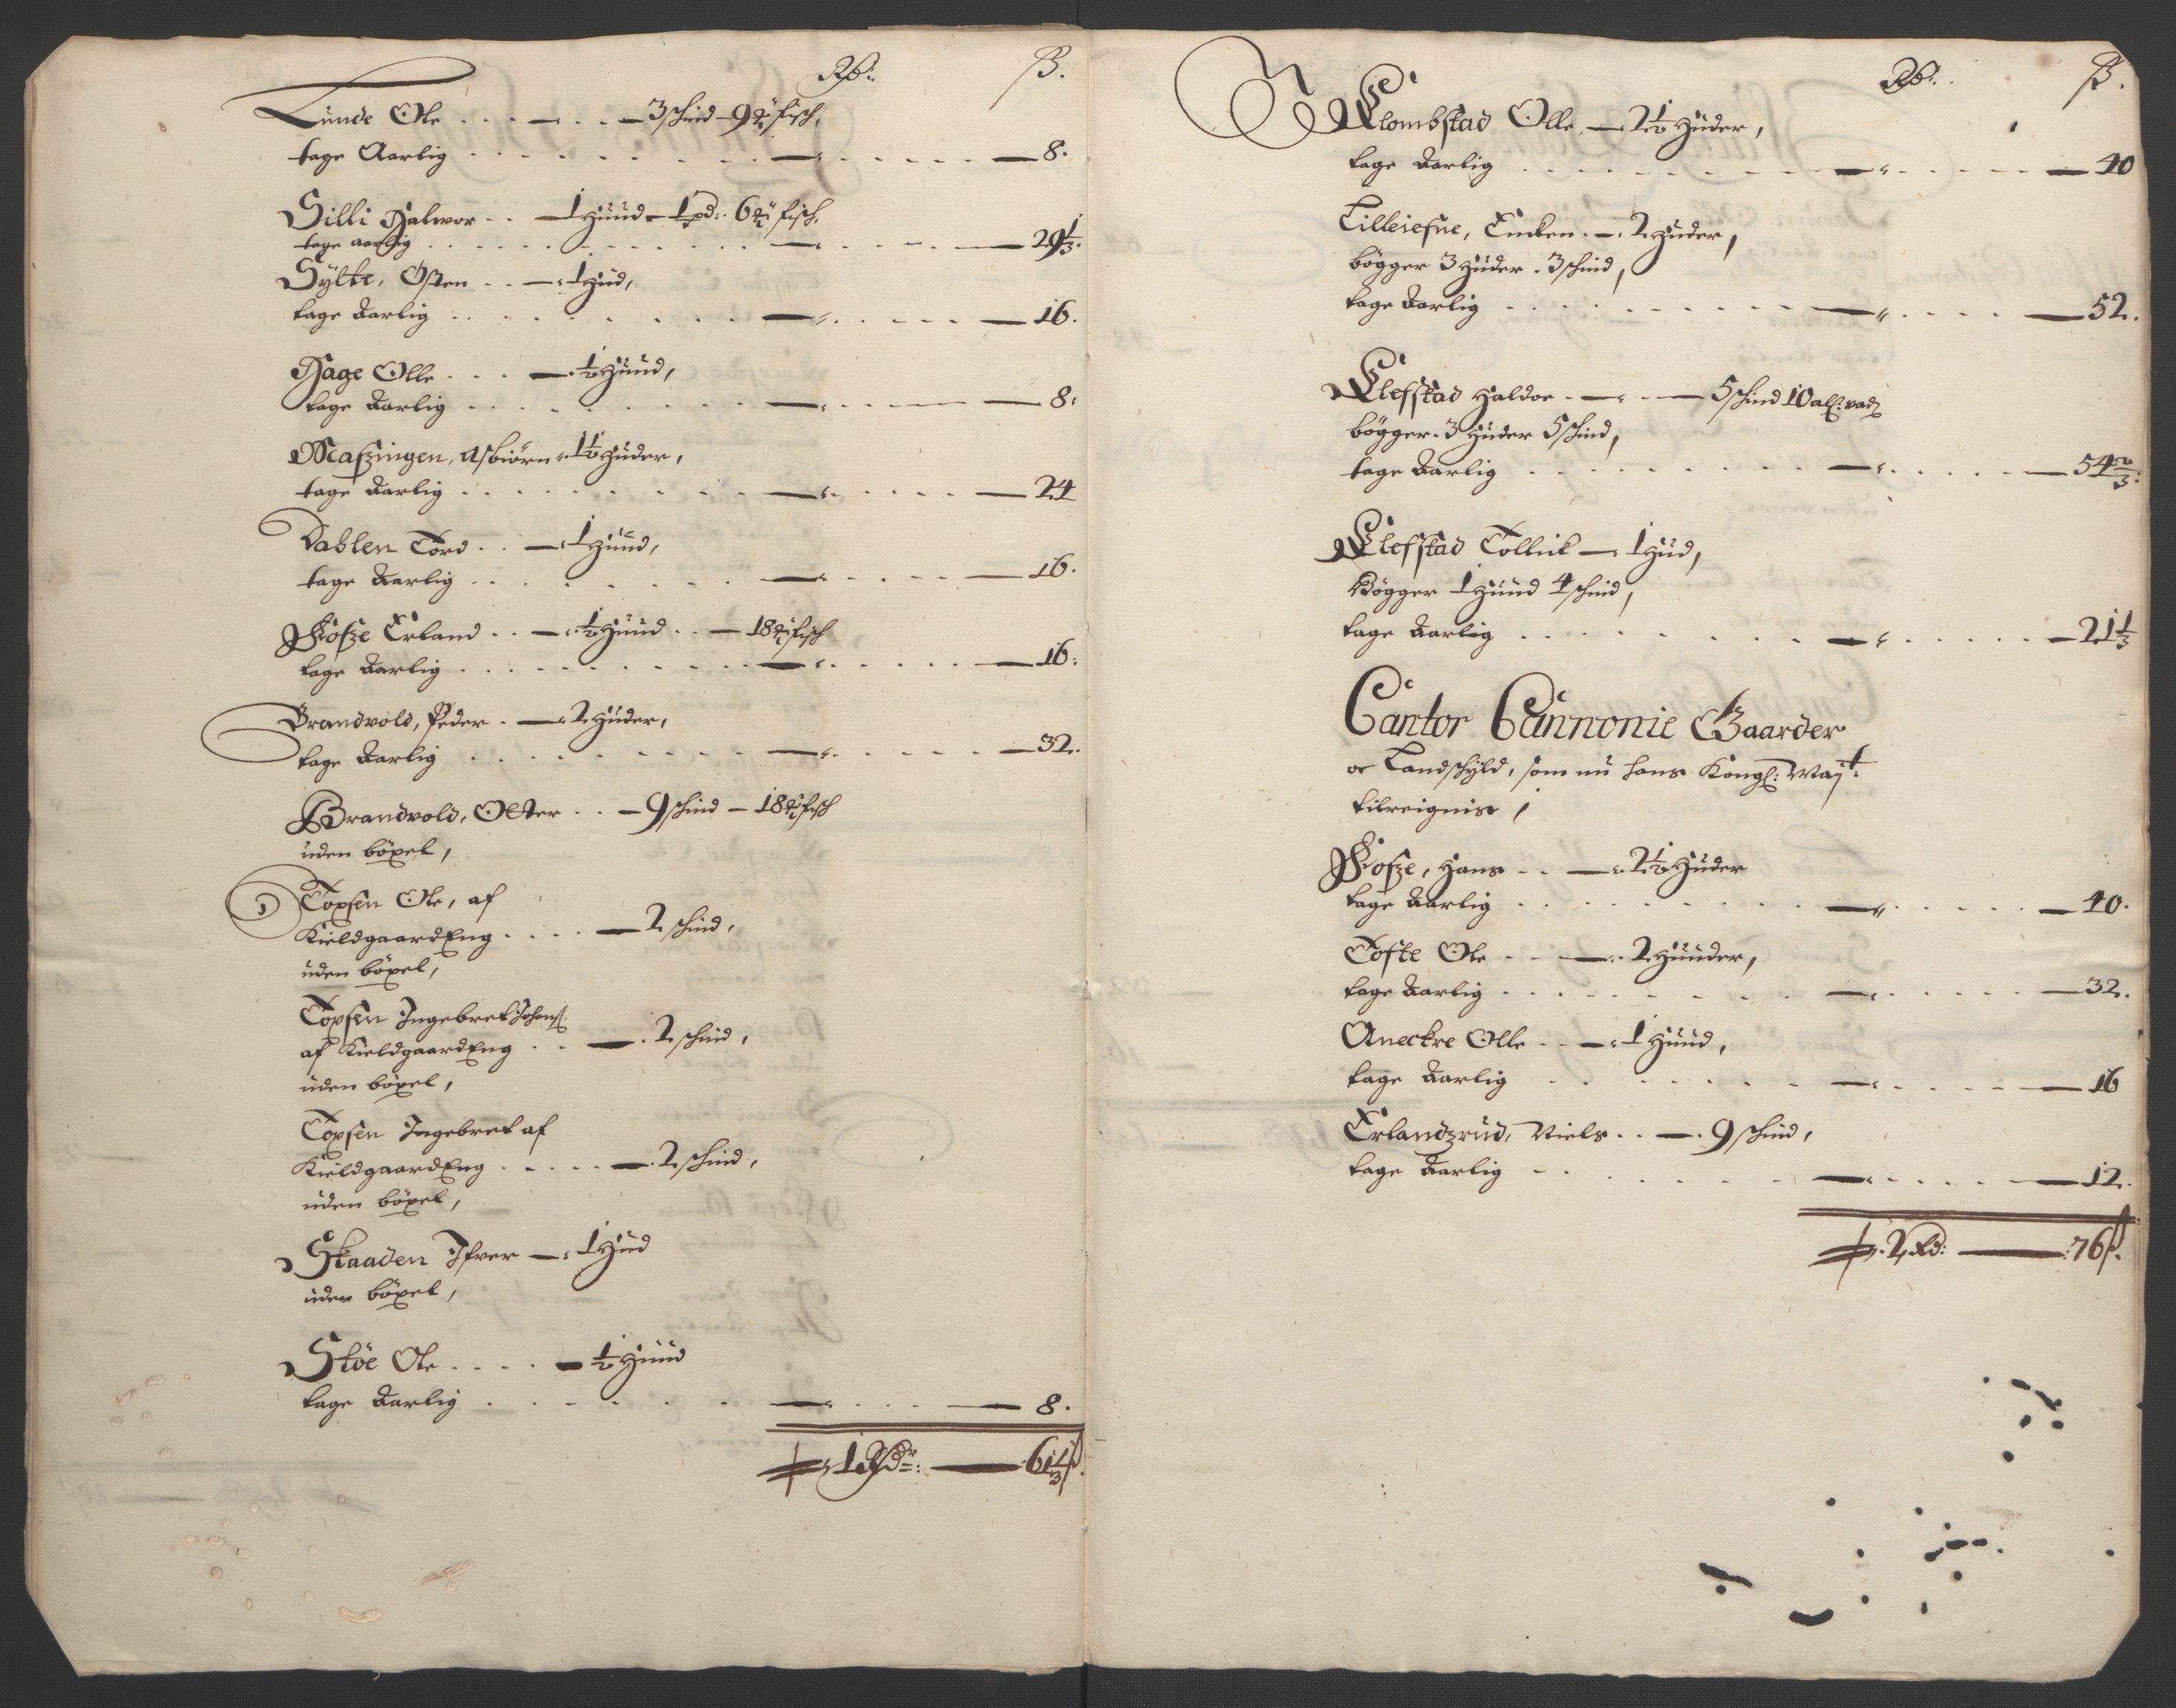 Rd: ß.
Lunde Ole . . . — . . — 3 schind — 9 fisch,
tage Aarlig . . . — . . . — 8.
Silli Halvor . . — 1 Huud — 1 pd: 6 fisch,
tage aarlig . . . — . . . — 29 1/3.
Sylte, Østen . . — 1 Hud,
tage Aarlig . . . — . . . — 16.
Hage Olle . . . — 1/2 Huud,
tage Aarlig . . . — . . . — 8.
Maszingen, Asbiørn - 1 1/2 Huder,
tage Aarlig . . . — . . . — 24
Dahlen Tord . . — 1 Huud,
tage Aarlig . . . — . . . — 16.
Kiosze Erland . . — 1/2 Huud . . — 18 fisch
tage Aarlig . . . — . . . — 16:
Brandvold, Peder . — 2 Huder,
tage Aarlig . . . — . . . — 32.
Brandvold, Ol . . — 9 schind — 18 fisch
uden böxel,
Toxsen Ole, af
Kieldgaard Eng . . . . — 2 schind,
uden böxel,
Toxsen Ingebret Johans:
af Kieldgaard Eng . . — . 2 schind,
uden böxel,
Toxsen Ingebret af
Kieldgaard Eng . . . . . — . 2 schind,
uden böxel,
Skaaden Ifver — 1 Hud
uden böxel,
Stöe Ole . . . . — 1/2 Huud
tage Aarlig . . . — . . . — 8.
1 Rdr: — 61 1/3 ß.
Rd: ß.
Klombstad Olle — 2 1/2 Huder,
tage Aarlig . . . — . . . — 40
Lilleiefne, Encken . — . 2 Huder,
bögger 3 Huder . 3 schind,
tage Aarlig . . . — . . . — 52.
Klefstad Haldor . — . — 5 schind 10 al: vad
bögger . 3 Huder 5 schind,
tage Aarlig . . . — . . . — 54 2/3:
Klefstad Tollick — 1 Hud,
Bögger 1 Huud 4 schind,
tage Aarlig . . . — . . . — 21 1/3
Cantor Cannonie Gaarder
oc Landschyld, som nu hans Kongl: Mayt:
tilreignis,
Kiosze, Hans . . — 2 1/2 Huder
tage Aarlig . . . — . . . — 40.
Tofte Ole . . — . 2 Huuder,
tage Aarlig . . . — . . . — 32.
Aneckre Olle . . — 1 Huud,
tage Aarlig . . . — . . . — 16
Erlandzrud, Niels . . — . 9 schind,
tage Aarlig . . . — . . . — 12.
2 Rd: — 76 ß.